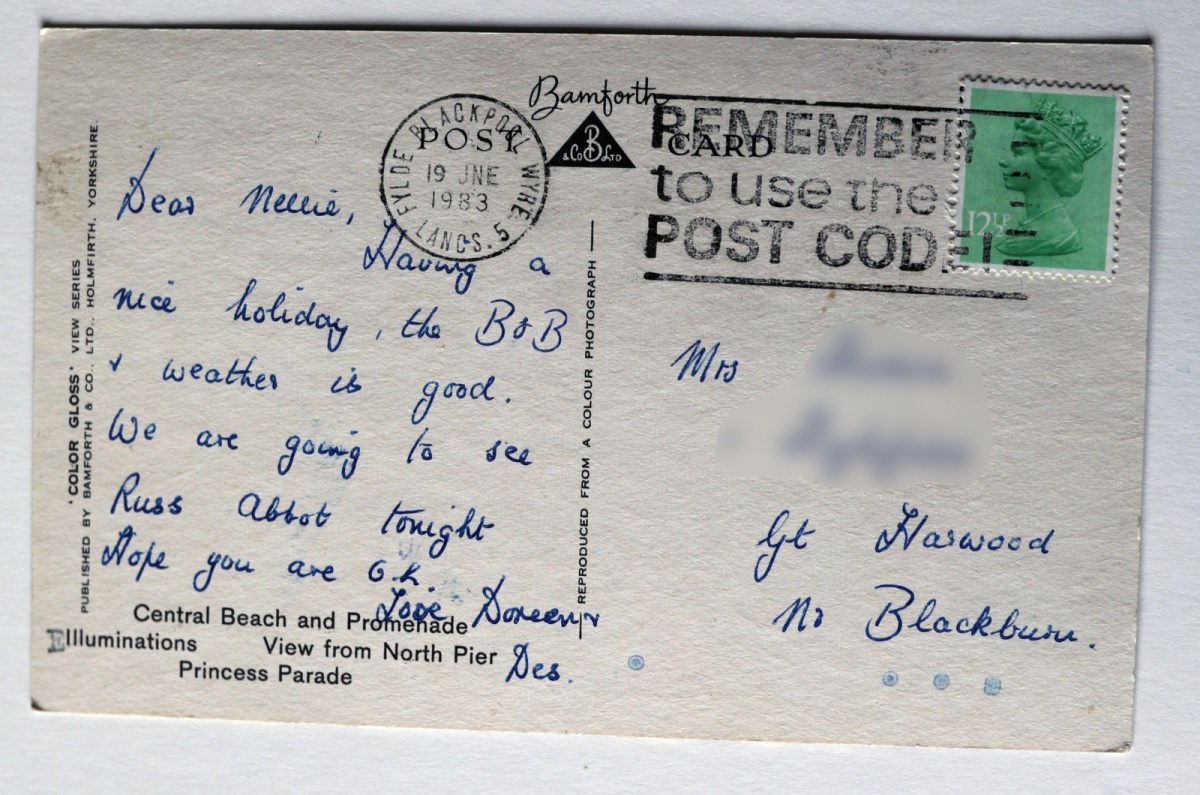 Bamforth
POST CARD
B
& Co LTD
BLACKPOOL WYRE
FYLDE LANCS. 5
19 JNE
1983
REMEMBER
to use the
POST CODE!
12½P
'COLOR GLOSS' VIEW SERIES
PUBLISHED BY BAMFORTH & CO., LTD., HOLMFIRTH, YORKSHIRE.
Dear Nellie,
Having a
nice holiday, the B&B
& weather is good.
We are going to see
Russ Abbot tonight
Hope you are O.K.
Love Doreen &
Des.
Central Beach and Promenade
Illuminations View from North Pier
Princess Parade
REPRODUCED FROM A COLOUR PHOTOGRAPH
Mrs
Gt Harwood
Nr Blackburn.